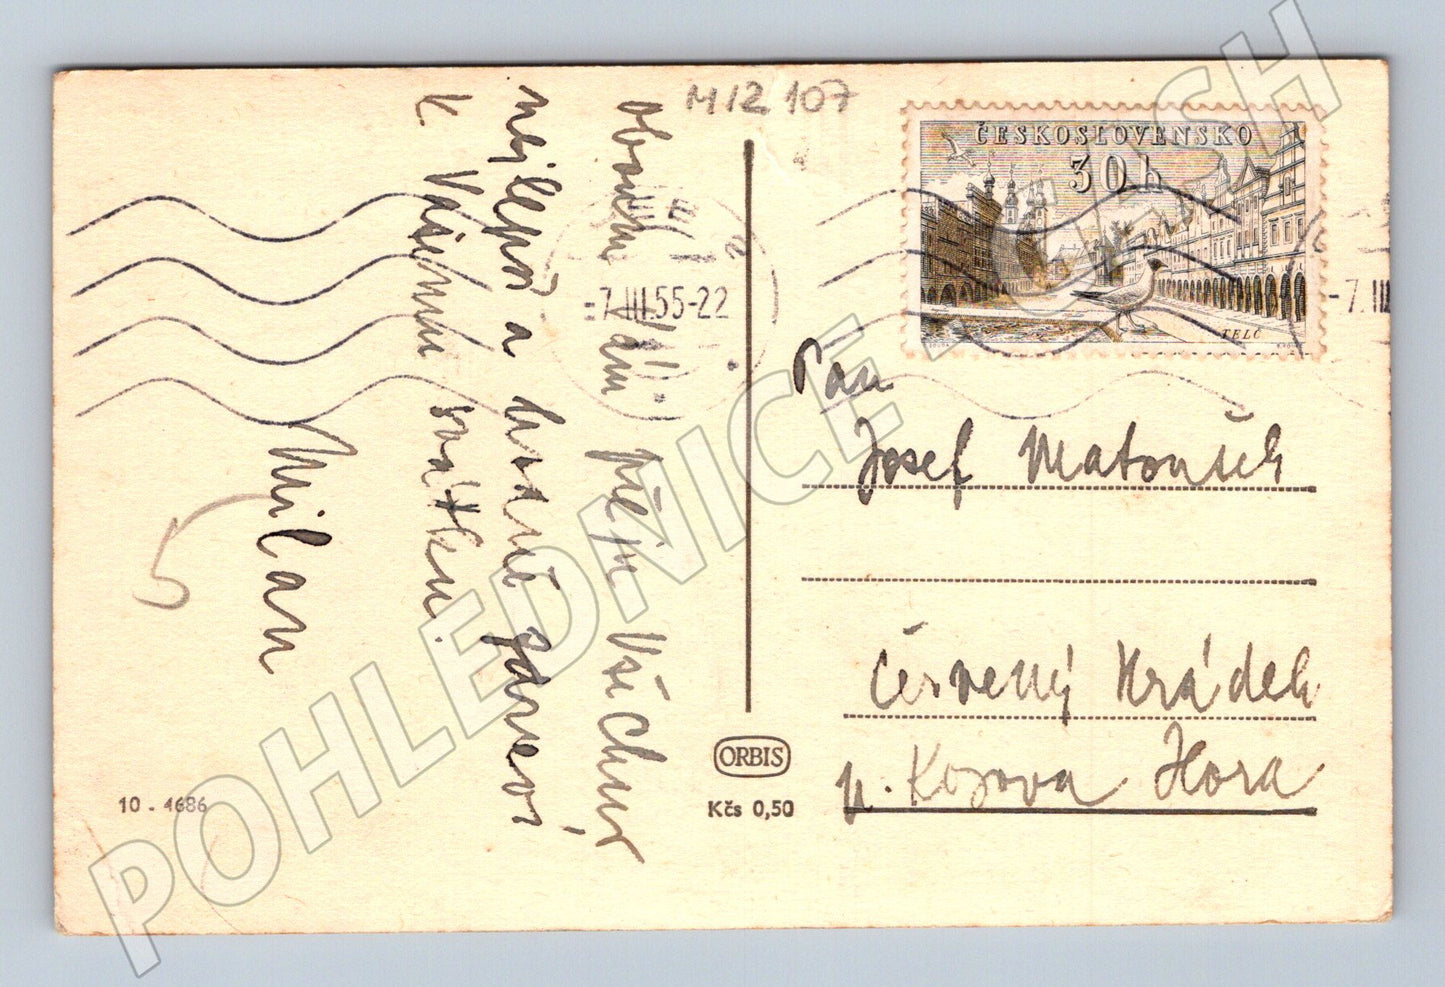 M12 107
ČESKOSLOVENSKO
30h
TELČ
-7.III.55-22
-7.III
Vám přeji Všichni
nejlepší a hodně zdraví
k Vašemu svátku.
Milan
Pan
Josef Matoušek
Červený Hrádek
p. Kozova Hora
ORBIS
Kčs 0,50
10 - 4686
POHLEDNICE - GYSH